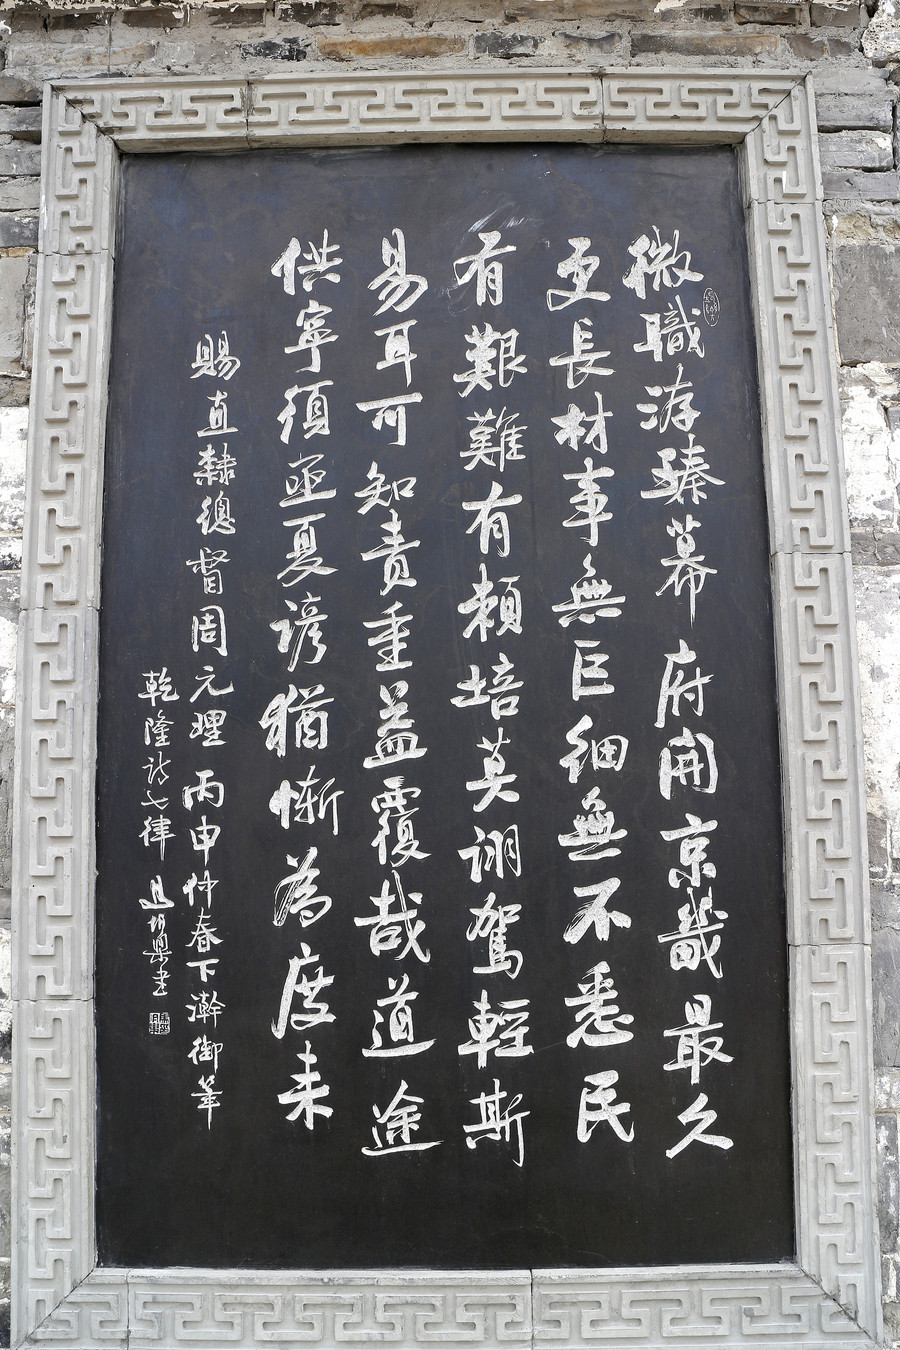 微職洊臻幕府開京畿最久
更長材事無巨細無不悉民
有艱難有賴培莫詡駕輕斯
易耳可知責重益覆哉道途
供寧須亟夏諺猶慚為度来
賜直隸總督周元理丙申仲春下澣御筆
乾隆詩七律 書